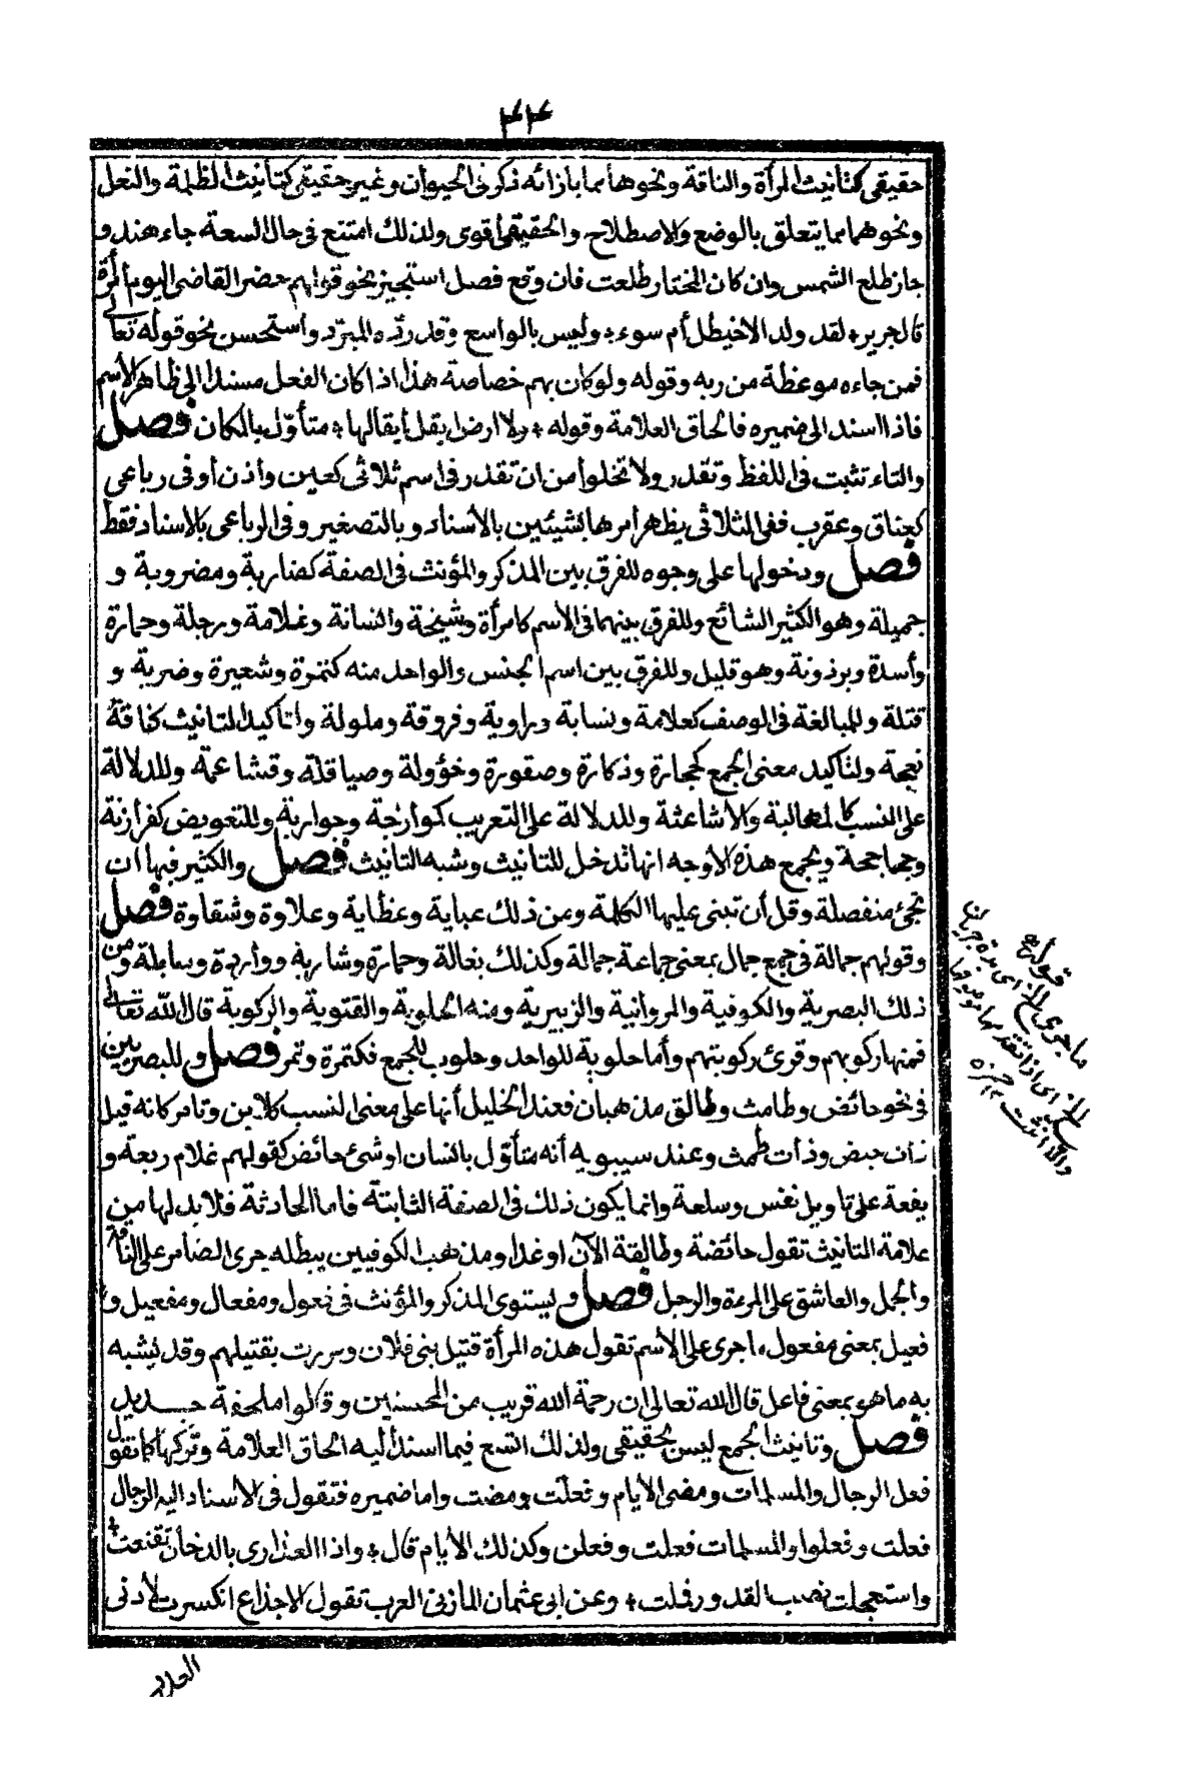 ٤٤
حقيقي كتأنيث المرأة والناقة ونحوهما مما بازائه ذكر في الحيوان وغير حقيقي كتأنيث الظلمة والنعل
ونحوهما مما يتعلق بالوضع والاصطلاح والحقيقي أقوى ولذلك امتنع في حال السعة جاء هند و
جاز طلع الشمس وان كان المختار طلعت فان وقع فصل استجيز نحو قولهم حضر القاضي اليوم امرأة
قال جرير ٭ لقد ولد الاخيطل أم سوء ٭ وليس بالواسع وقد ردّه المبرّد واستحسن نحو قوله تعالى
فمن جاءه موعظة من ربه وقوله ولو كان بهم خصاصة هذا اذا كان الفعل مسندا الى ظاهر الأسم
فاذا اسند الى ضميره فالحاق العلامة وقوله ٭ ولا ارض ابقل أبقالها ٭ متأوّل بالمكان فصل
والتاء تثبت في اللفظ وتقدر ولا تخلوا من ان تقدر في اسم ثلاثي كعين وأذن أو في رباعي
كعناق وعقرب ففي الثلاثي يظهر أمرها بشيئين بالأسناد وبالتصغير وفي الرباعي بالاسناد فقط
فصل ودخولها على وجوه للفرق بين المذكر والمؤنث في الصفة كضاربة ومضروبة و
جميلة وهو الكثير الشائع وللفرق بينهما في الأسم كامرأة وشيخة وانسانة وغلامة ورجلة وحمارة
وأسدة وبرذونة وهو قليل وللفرق بين اسم الجنس والواحد منه كتمرة وشعيرة وضربة و
قتلة وللمبالغة في الوصف كعلامة ونسابة وراوية وفروقة وملولة ولتاكيد التانيث كناقة
نعجة ولتاكيد معنى الجمع كحجارة وذكارة وصقورة وخؤولة وصياقلة وقشاعمة وللدلالة
على النسب كالمهالبة والأشاعثة وللدلالة على التعريب كموازجة وجواربة وللتعويض كفرازنة
وجحاجحة ويجمع هذه الأوجه انها تدخل للتانيث وشبه التانيث فصل والكثير فيها ان
تجئ منفصلة وقل أن تبنى عليها الكلمة ومن ذلك عباية وعظاية وعلاوة وشقاوة فصل
وقولهم جمالة في جمع جمال بمعنى جماعة جمالة وكذلك بغالة وحمارة وشاربة وواردة وسابلة ومن
ذلك البصرية والكوفية والمروانية والزبيرية ومنه الحلوبة والقتوبة والركوبة قال الله تعالى
فمنها ركوبهم وقرئ ركوبتهم وأما حلوبة للواحد وحلوب للجمع فكتمرة وتمر فصل وللبصريين
في نحو حائض وطامث وطالق مذهبان فعند الخليل أنها على معنى النسب كلابن وتامر كانه قيل
ذات حيض وذات طمث وعند سيبويه أنه متأوّل بانسان او شئ حائض كقولهم غلام ربعة و
يفعة على تاويل نفس وسلعة وانما يكون ذلك في الصفة الثابتة فاما الحادثة فلا بد لها من
علامة التانيث تقول حائضة وطالقة الآن او غدا ومذهب الكوفيين يبطله جرى الضامر على الناقة
والجمل والعاشق على المرءة والرجل فصل ويستوى المذكر والمؤنث في فعول ومفعال ومفعيل و
فعيل بمعنى مفعول ما جرى على الأسم تقول هذه المرأة قتيل بنى فلان ومررت بقتيلهم وقد يشبه
به ما هو بمعنى فاعل قال الله تعالى ان رحمة الله قريب من المحسنين وقالوا ملحفة جديد
فصل وتانيث الجمع ليس بحقيقي ولذلك اتسع فيما اسند اليه الحاق العلامة وتركها كما تقول
فعل الرجال والمسلمات ومضى الأيام وفعلت ومضت واما ضميره فتقول في الأسناد اليه الرجال
فعلت وفعلوا والمسلمات فعلت وفعلن وكذلك الأيام قال ٭ واذا العذارى بالدخان تقنعت ٭
واستعجلت نصب القدور فملت ٭ وعن ابي عثمان المازني العرب تقول الاجذاع انكسرت لأدنى
قوله
ما جرى الخ